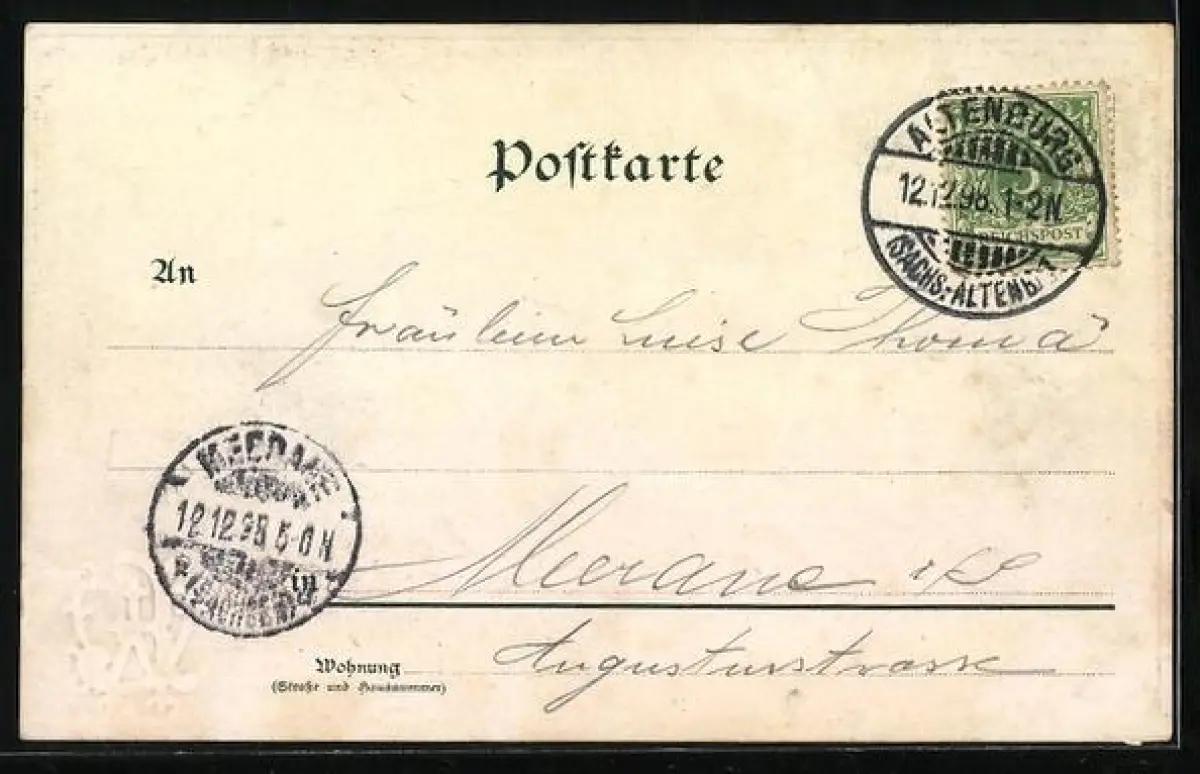 Postkarte
ALTENBURG
12.12.98. 1-2N
(SACHS.-ALTENB.)
REICHSPOST
An
Fräulein Luise Thomä
MEERANE
12.12.98 5-6 N
(SACHSEN)
in
Meerane i/S
Wohnung
(Straße und Hausnummer)
Augustusstrasse